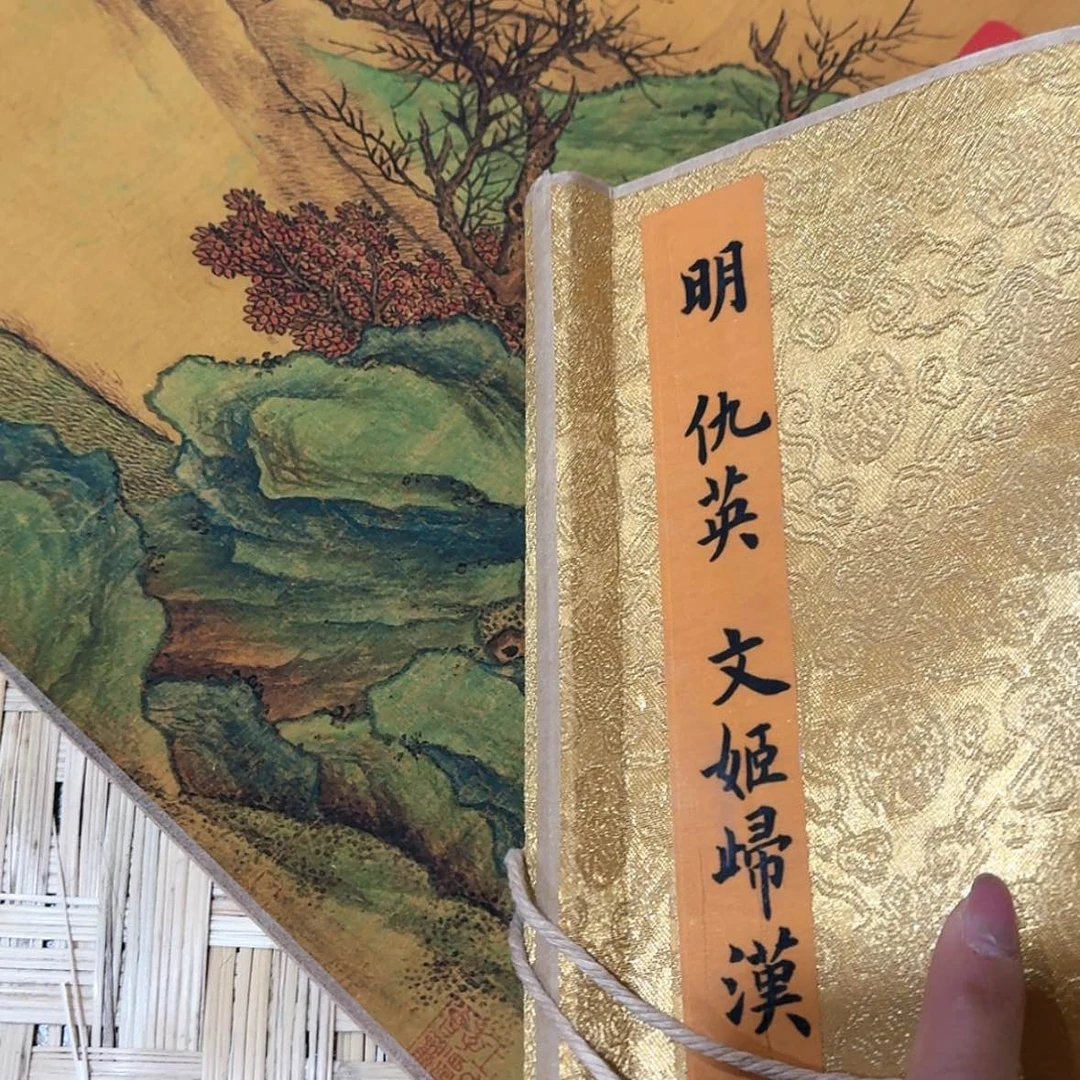 明 仇英 文姬歸漢